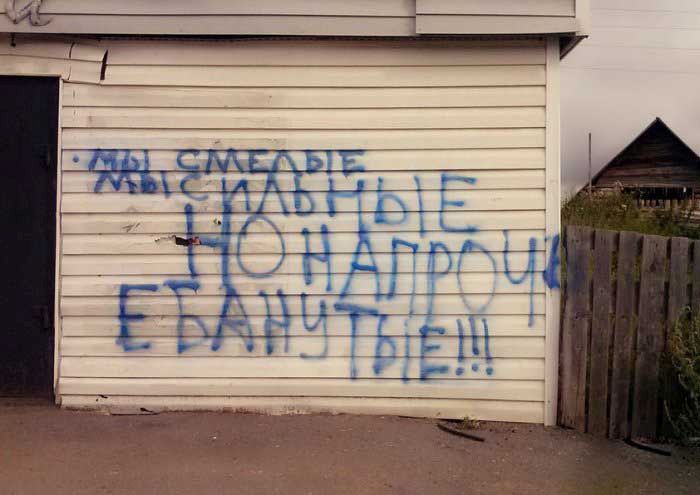 • МЫ СМЕЛЫЕ
МЫ СИЛЬНЫЕ
НО НАПРОЧЬ
ЕБАНУТЫЕ!!!